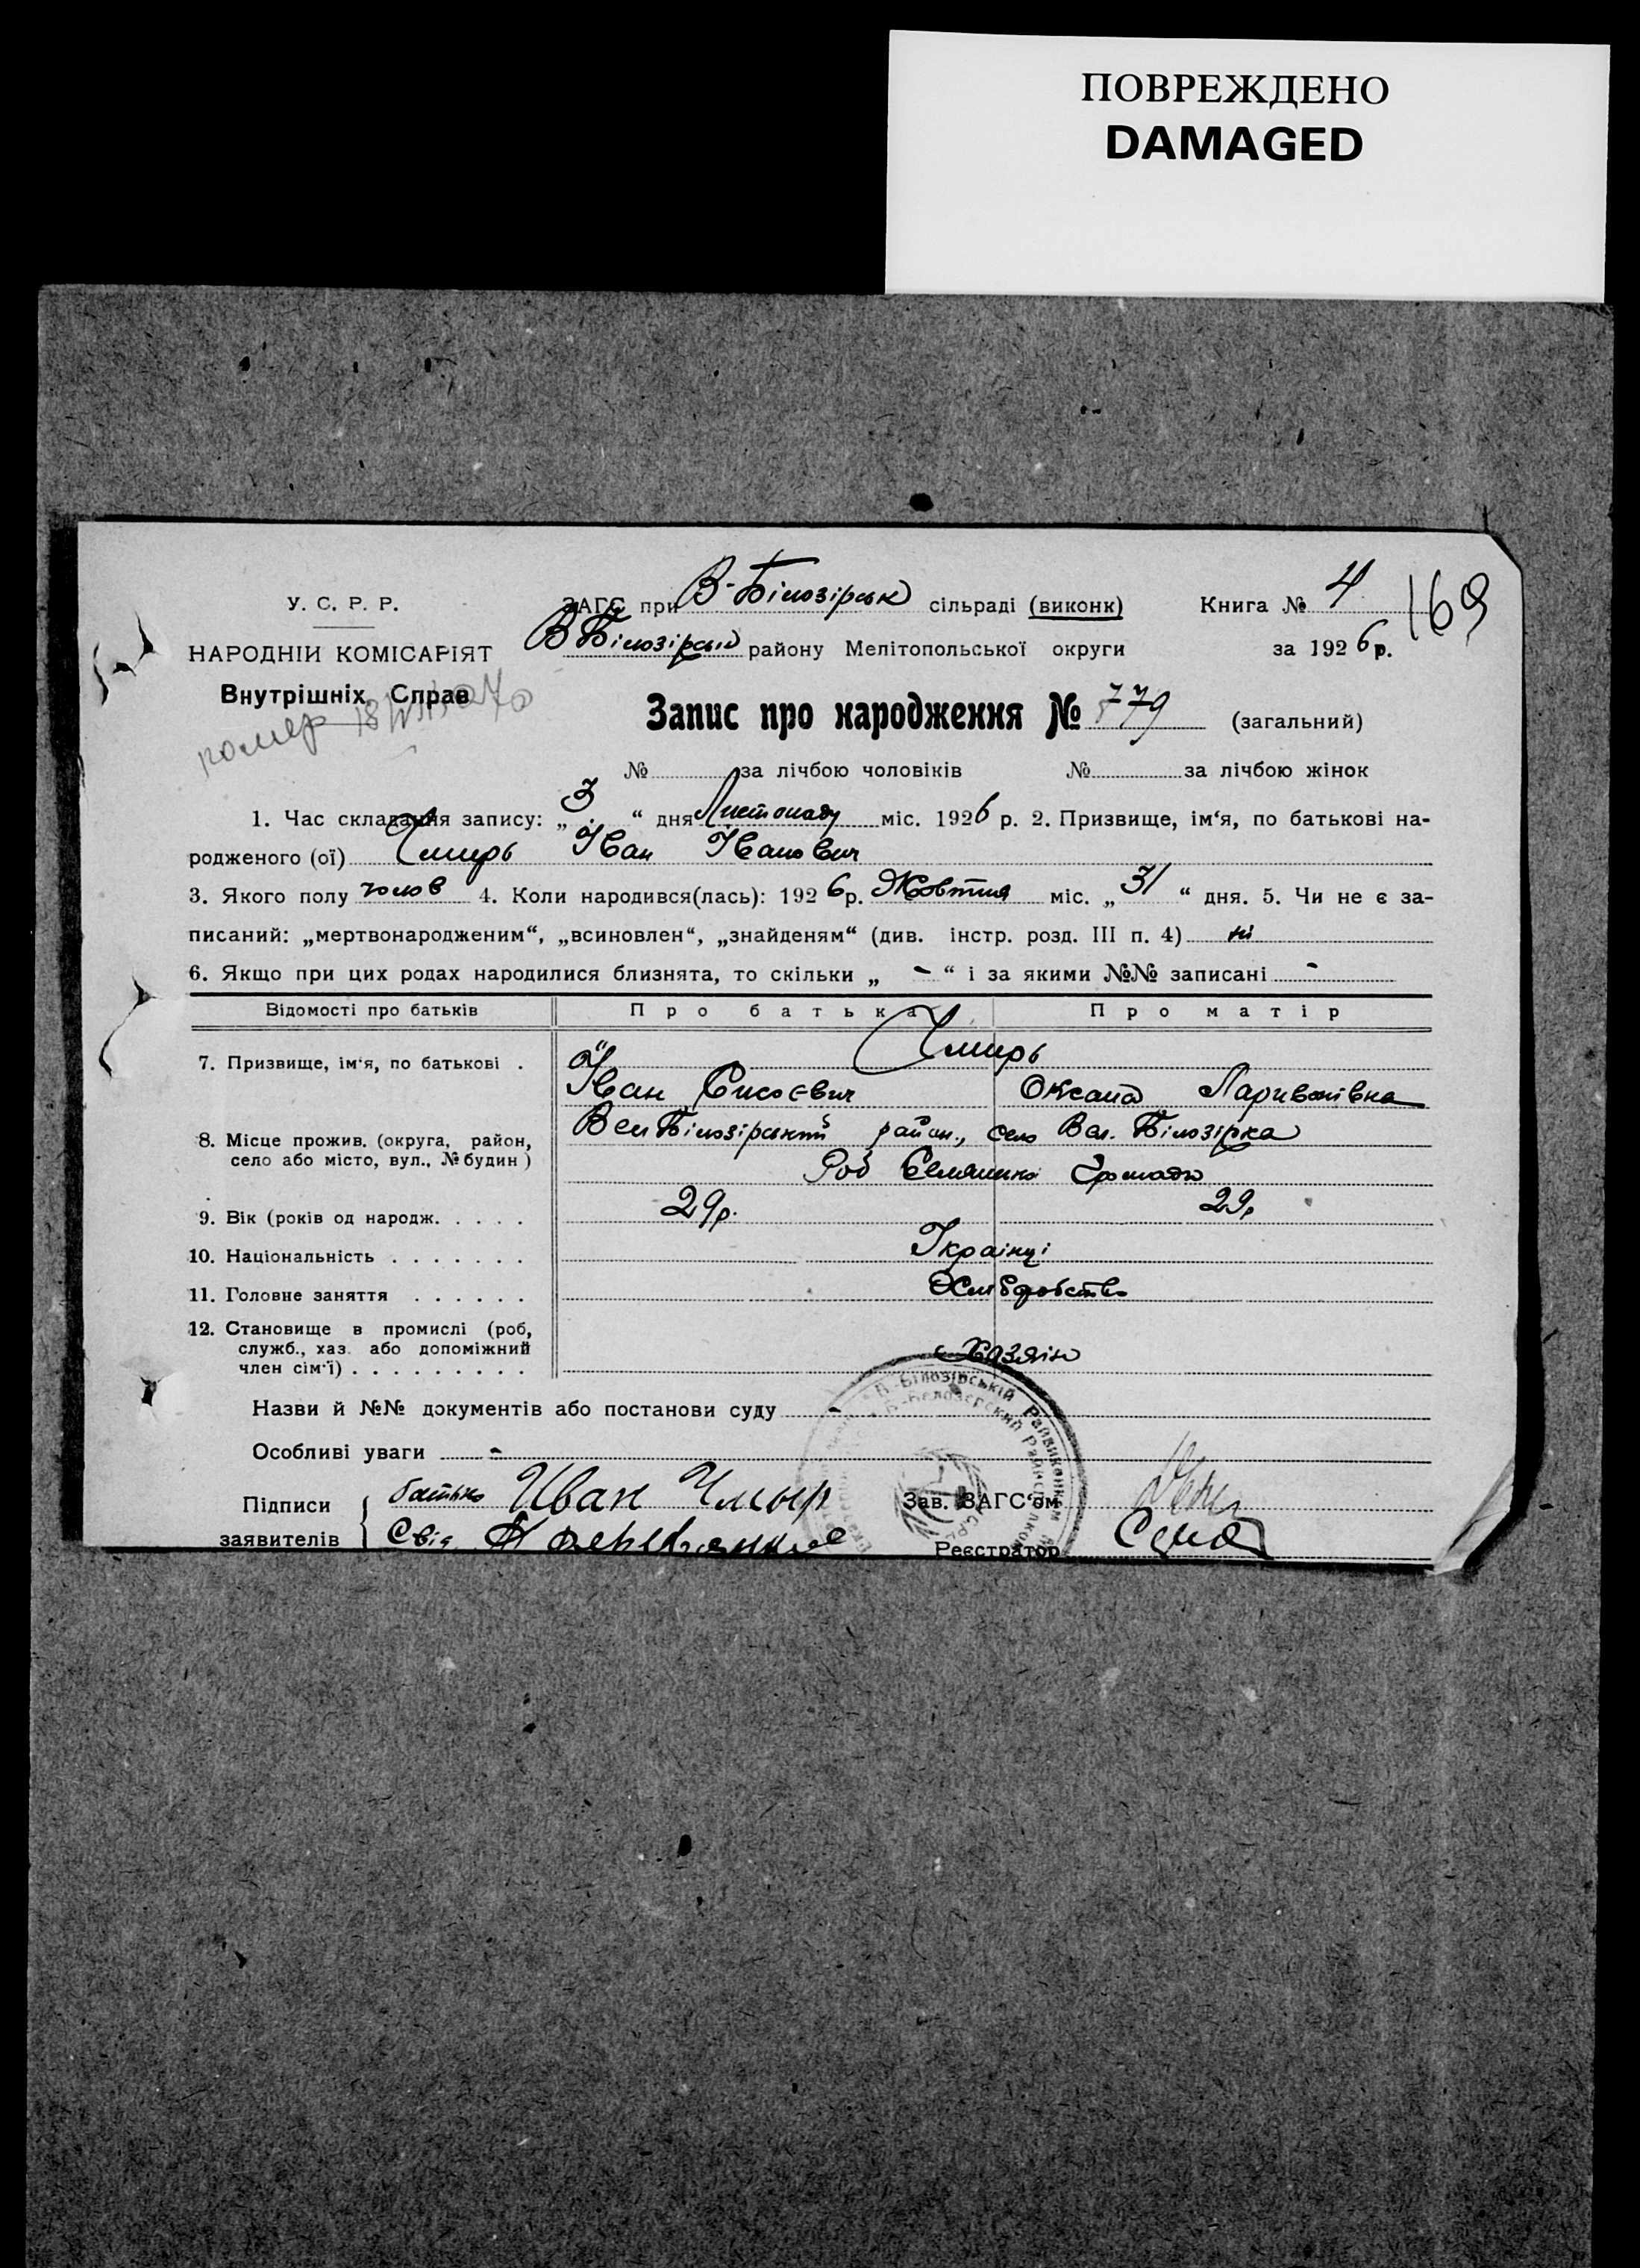 ПОВРЕЖДЕНО
DAMAGED
У. С. Р. Р.
ЗАГС при В-Білозірськ сільраді (виконк) Книга № 4 169
НАРОДНІЙ КОМІСАРІЯТ
В Білозірськ району Мелітопольської округи за 1926 р.
Внутрішніх Справ
помер 18
Запис про народження № 779 (загальний)
№ за лічбою чоловіків № за лічбою жінок
1. Час складання запису: „ 3 “ дня Листопаду міс. 1926 р. 2. Призвище, ім‘я, по батькові на-
родженого (ої) Чмирь Іван Іванович
3. Якого полу чолов 4. Коли народився(лась): 1926 р. Жовтня міс. „ 31 “ дня. 5. Чи не є за-
писаний: „мертвонародженим“, „всиновлен“, „знайденям“ (див. інстр. розд. III п. 4) ні
6. Якщо при цих родах народилися близнята, то скільки „ - “ і за якими №№ записані -
Відомості про батьків Про батька Про матір
7. Призвище, ім‘я, по батькові . Чмирь
Іван Сисоєвич Оксана Ларивонівна
8. Місце прожив. (округа, район, Вел Білозірський район., село Вел. Білозірка
село або місто, вул., № будин)
Громада
9. Вік (років од народж. . . . . 29 р. 29 р
10. Національність . . . . . . . Українці
11. Головне заняття . . . . . . Хліборобство
12. Становище в промислі (роб,
служб., хаз. або допоміжний Хазяїн
член сім‘ї) . . . . . . . . .
Назви й №№ документів або постанови суду -
Особливі уваги -
Підписи батько Иван Чмыр Зав. ЗАГС‘ом
заявителів Свід Реєстратор